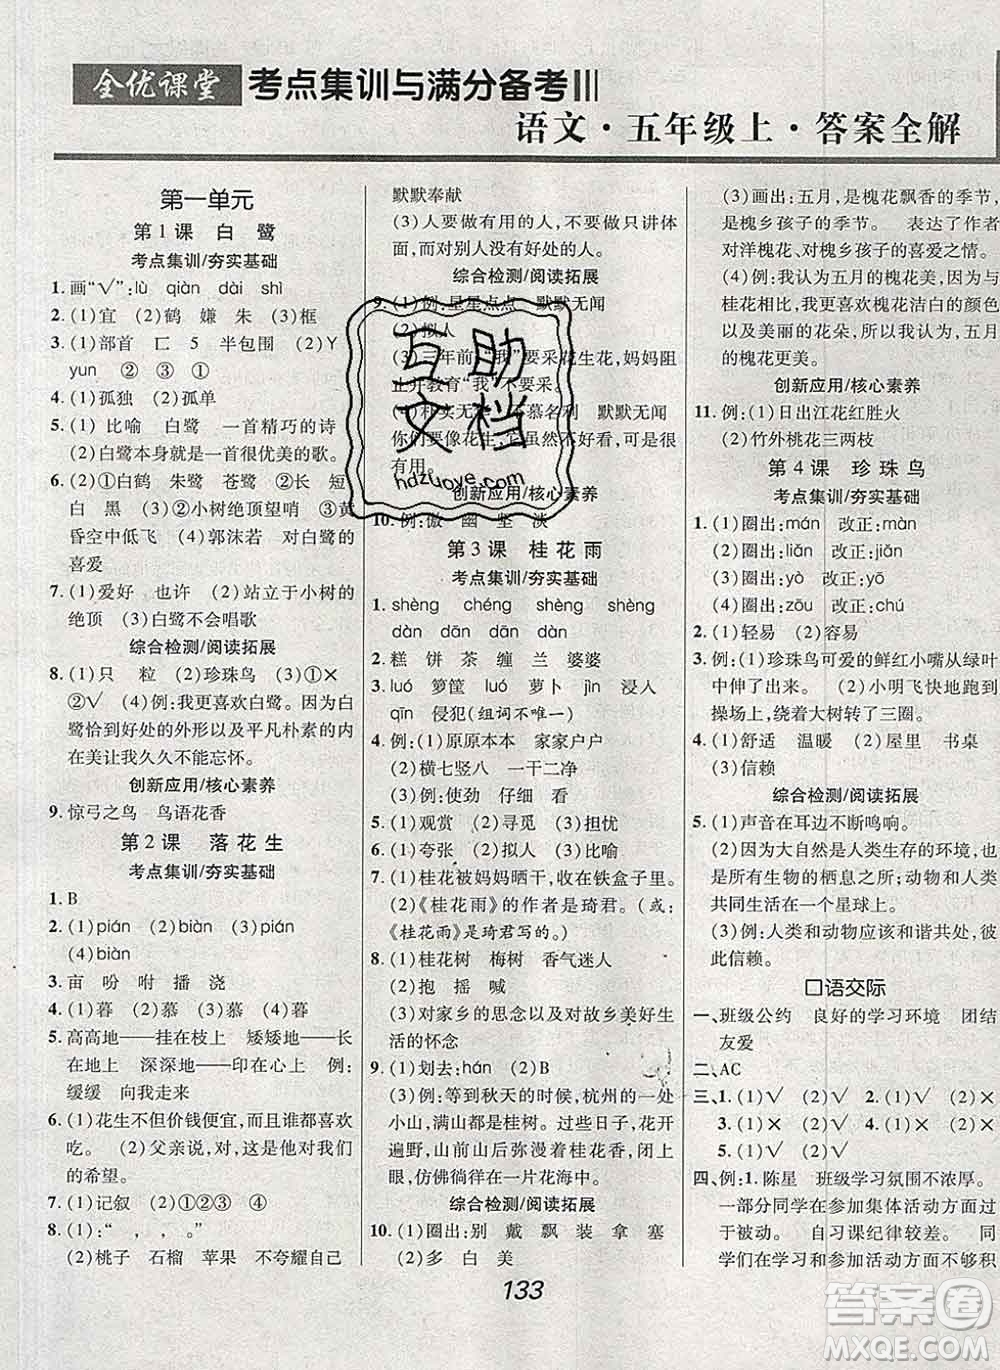 全优课堂 考点集训与满分备考
语文·五年级上·答案全解
第一单元
第1课 白鹭
考点集训/夯实基础
1.画“√”:lù qiàn dài shì
2.(1)宜 (2)鹤 嫌 朱 (3)框
3.(1)部首 匚 5 半包围 (2)Y
yun ② ③①
4.(1)孤独 (2)孤单
5.(1)比喻 白鹭 一首精巧的诗
(2)白鹭本身就是一首很优美的歌。
6.(2)①白鹤 朱鹭 苍鹭 ②长 短
白 黑 (3)②小树绝顶望哨 ③黄
昏空中低飞 (4)郭沫若 对白鹭的
喜爱
7.(1)爱好 也许 (2)站立于小树的
绝顶 (3)白鹭不会唱歌
综合检测/阅读拓展
8.(1)只 粒 (2)珍珠鸟 (3)①×
②√ (4)例:我更喜欢白鹭,因为白
鹭恰到好处的外形以及平凡朴素的内
在美让我久久不能忘怀。
创新应用/核心素养
9.惊弓之鸟 鸟语花香
第2课 落花生
考点集训/夯实基础
1.B
2.(1)pián (2)biàn (3)pián
(4)biàn
3.亩 吩 咐 播 浇
4.(1)暮 (2)慕 (3)墓 (4)幕
5.高高地——挂在枝上 矮矮地——长
在地上 深深地——埋在土里 例:
缓缓 向我走来
6.(1)花生不但价钱便宜,而且谁都喜欢
吃。 (2)父亲说,对,这是我对我们
的希望。
7.(1)记叙 (2)①②③ ④
8.(1):“ , , 。”
(2)桃子 石榴 苹果 不夸耀自己
默默奉献
(3)人要做有用的人,不要做只讲体
面,而对别人没有好处的人。
综合检测/阅读拓展
9.(1)例:星星点点 默默无闻
(2)拟人
(3)三年前“我”要采花生花,妈妈阻
止并教育“我”不要采。
(4)朴实无华 不慕名利 默默无闻
你们要像花生,它虽然不好看,可是很
有用。
创新应用/核心素养
10.例:傲 幽 坚 淡
第3课 桂花雨
考点集训/夯实基础
1.shèng chéng shèng shèng
dàn dān dān dàn
2.糕 饼 茶 缠 兰 婆婆
3.luó 箩筐 luó 萝卜 jìn 浸入
qīn 侵犯(组词不唯一)
4.例:(1)原原本本 家家户户
(2)横七竖八 一干二净
(3)例:使劲 仔细 看
5.(1)观赏 (2)寻觅 (3)担忧
6.(1)夸张 (2)拟人 (3)比喻
7.(1)桂花被妈妈晒干,收在铁盒子里。
(2)《桂花雨》的作者是琦君。(或:
《桂花雨》是琦君写的。)
8.(1)桂花树 梅树 香气迷人
(2)抱 摇 喊
(3)对家乡的思念以及对故乡美好生
活的怀念
9.(1)划去:hán (2)B
(3)例:等到秋天的时候,杭州的一处
小山,满山都是桂树。花开
遍野,山前山后弥漫着桂花香,
仿佛徜徉在一片花海中。
综合检测/阅读拓展
10.(1)圈出:别 戴 飘 装 拿 塞
(2)多 白 美
(3)画出:五月,是槐花飘香的季节,
是槐乡孩子的季节。 表达了作者
对洋槐花、对槐乡孩子的喜爱之情。
(4)例:我认为五月的槐花美,因为与
桂花相比,我更喜欢槐花洁白的颜色
以及美丽的花朵,所以我觉得五月
的槐花更美。
创新应用/核心素养
11.例:(1)日出江花红胜火
(2)竹外桃花三两枝
第4课 珍珠鸟
考点集训/夯实基础
1.(1)圈出:mán 改正:màn
(2)圈出:liǎn 改正:jiǎn
(3)圈出:yò 改正:yō
(4)圈出:zōu 改正:chú
2.(1)轻易 (2)容易
3.例:(1)珍珠鸟可爱的鲜红小嘴从绿叶
中伸了出来。 (2)小明飞快地跑到
操场上,绕着大树转了三圈。
4.(1)舒适 温暖 (2)屋里 书桌
(3)信赖
综合检测/阅读拓展
5.(1)声音在耳边不断鸣响。
(2)因为大自然是人类生存的环境,也
是所有生物的栖息地;动物和人类是
共同生活在一个星球上。
(3)例:人类和动物应该和谐相处,共
享这美丽世界。
口语交际
一、班级公约 良好的学习环境 团结
友爱
二、AC
三、1.(1)√ (2)× (3)√ 2.(1)√
(2)√ 3.(1)× (2)√ 4.(1)×
5.(1)√ (2)√
四、例:1.陈星 班级学习氛围不浓厚。
一部分同学在参加集体活动方面过
于被动。 自习课纪律较差。 同
学们在参加活动方面不够积
133
互助
文档
hdzuoye.com
答案圈
MXQE.COM